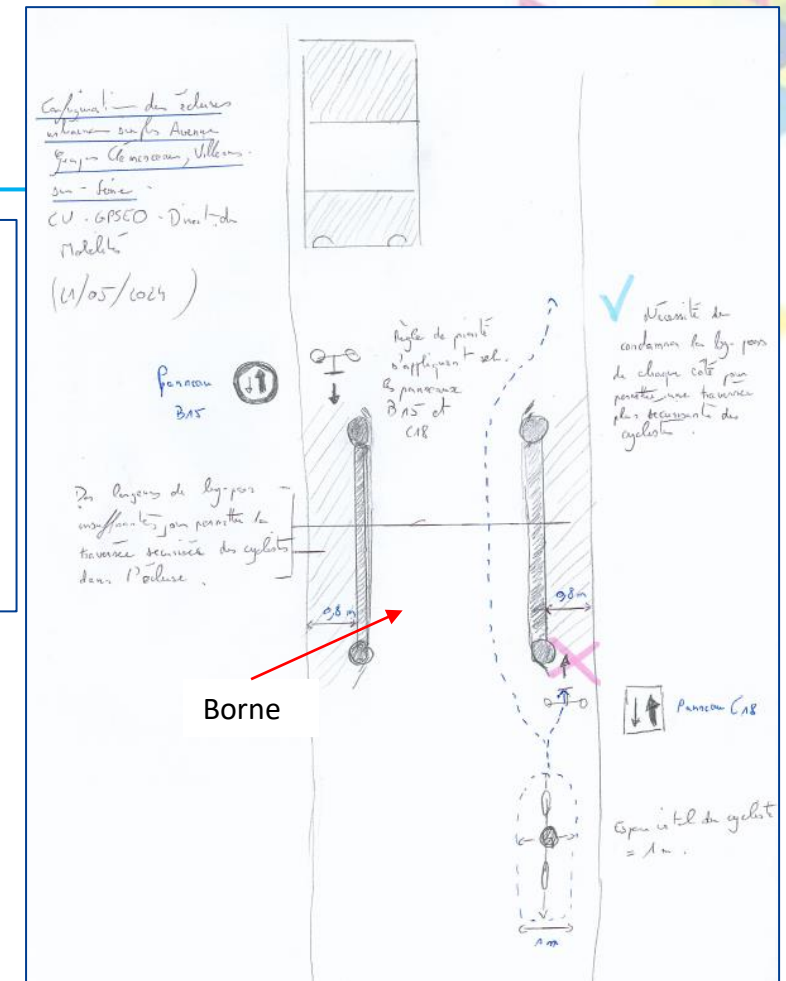 Configuration des écluses
urbaines sur les Avenue
Georges Clémenceau, Villennes-
sur-Seine.
CU-GPSEO-Direct° des
Mobilités
(21/05/2024)
Panneau
B15
Règle de priorité
s'appliquent selon
les panneaux
B15 et
C18
Nécessité de
condamner les by-pass
de chaque côté pour
permettre une traversée
plus sécurisante des
cyclistes.
Des largeurs de by-pass
insuffisantes pour permettre la
traversée sécurisée des cyclistes
dans l'écluse.
0,8 m
0,8 m
Borne
Panneau C18
Espace vital du cycliste
= 1 m.
1 m